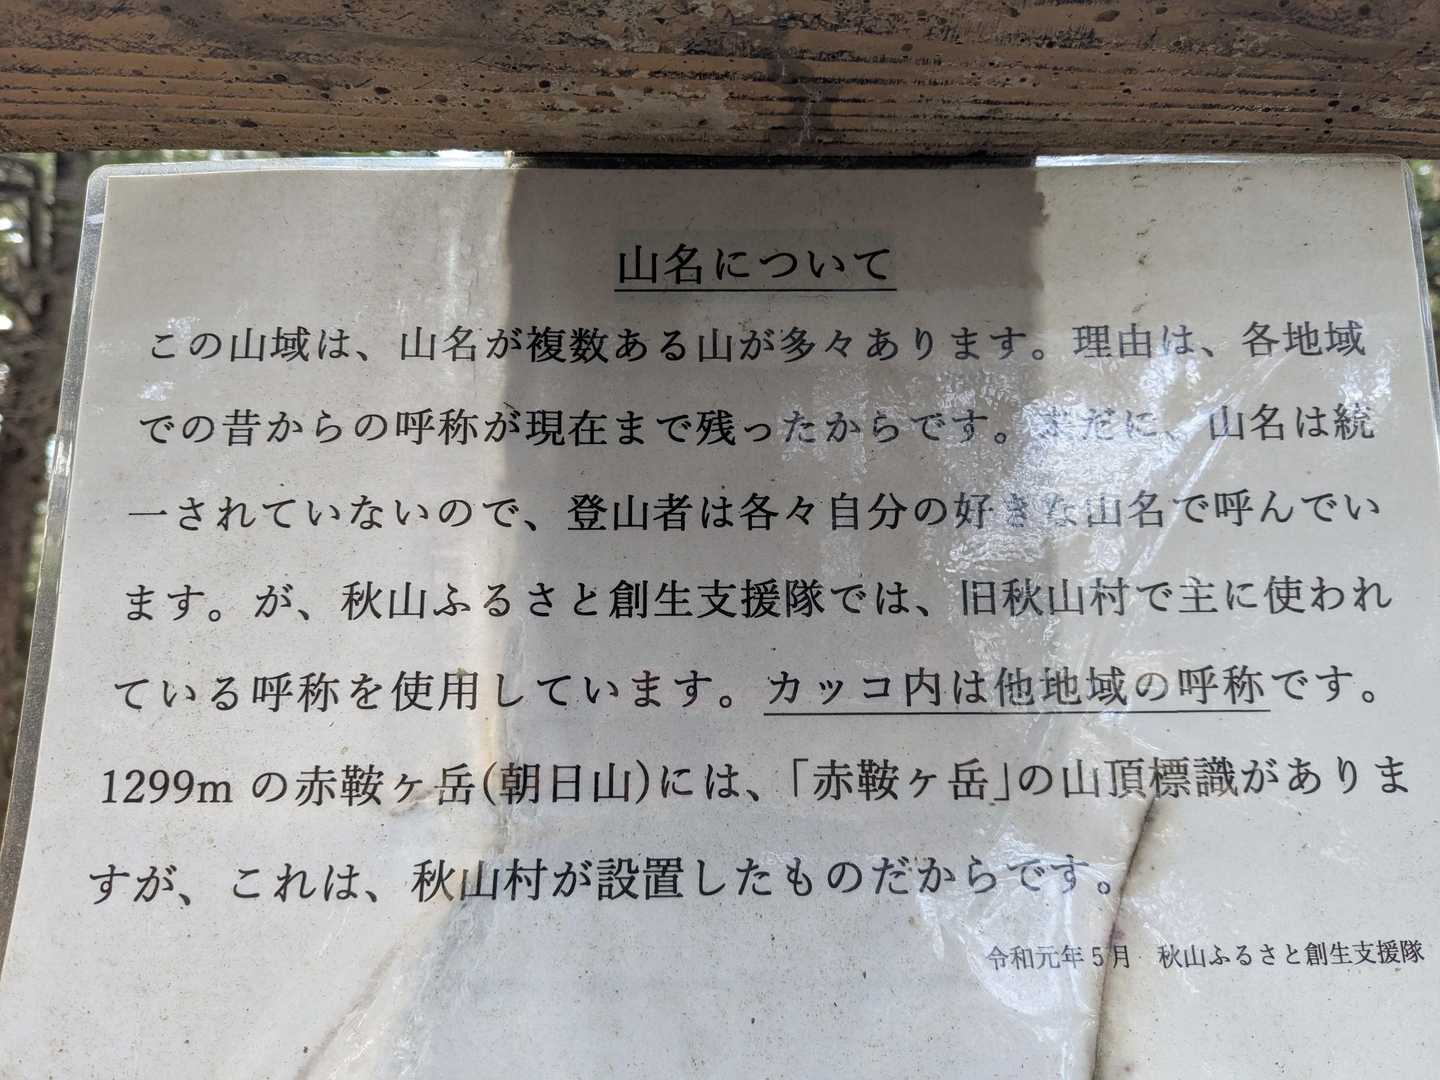 山名について
この山域は、山名が複数ある山が多々あります。理由は、各地域
での昔からの呼称が現在まで残ったからです。未だに、山名は統
一されていないので、登山者は各々自分の好きな山名で呼んでい
ます。が、秋山ふるさと創生支援隊では、旧秋山村で主に使われ
ている呼称を使用しています。カッコ内は他地域の呼称です。
1299mの赤鞍ヶ岳(朝日山)には、「赤鞍ヶ岳」の山頂標識がありま
すが、これは、秋山村が設置したものだからです。
令和元年5月 秋山ふるさと創生支援隊